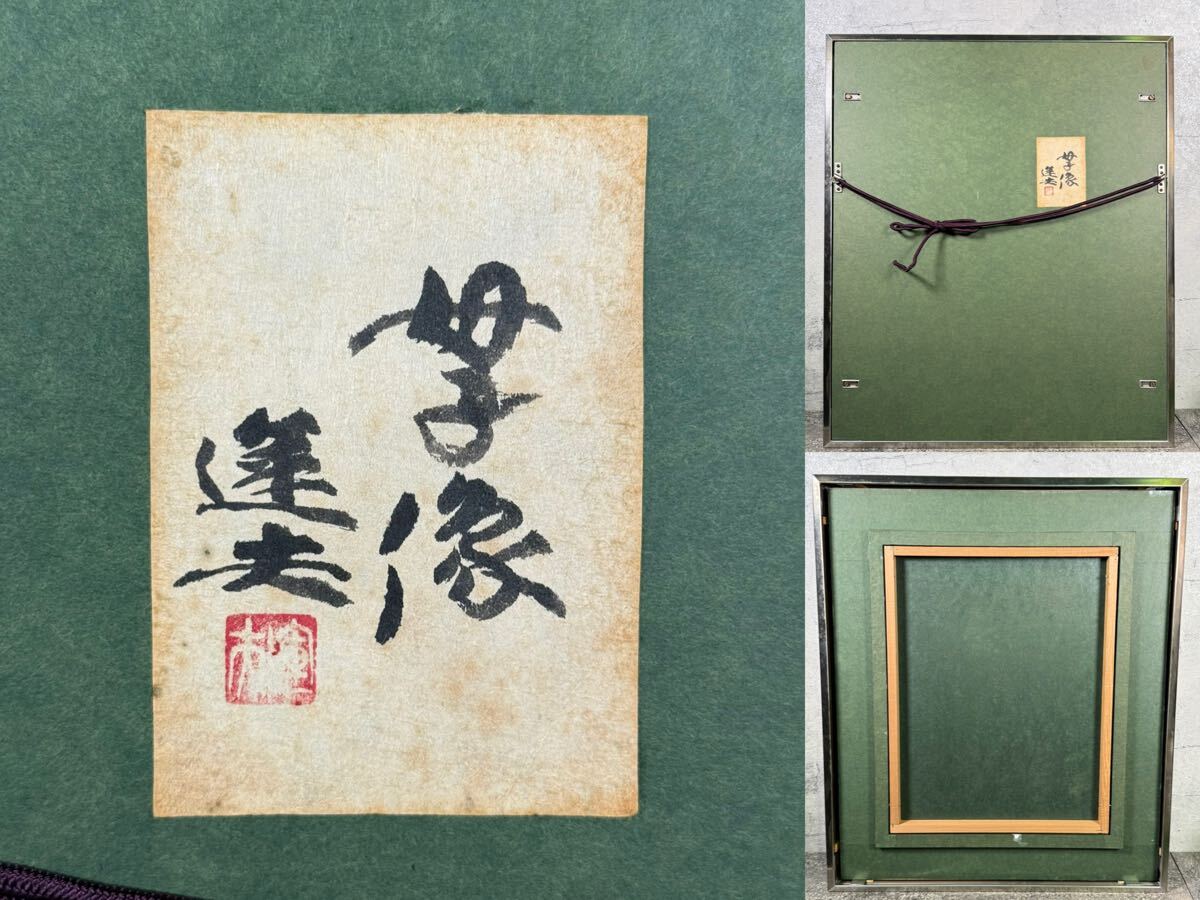 母子像
達夫
母子像
達夫